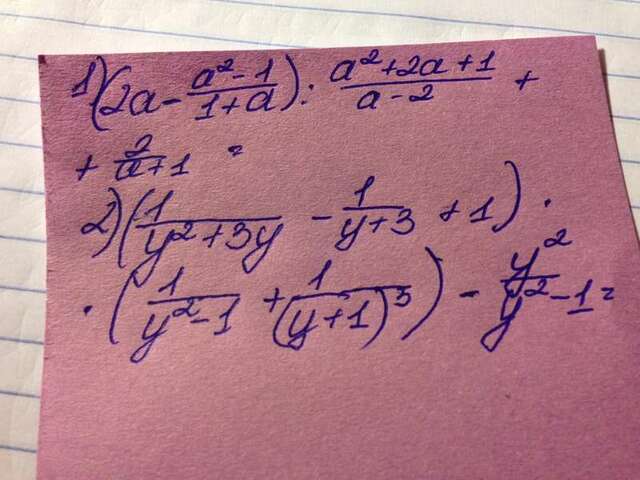 1) (2a - \frac{a^2 - 1}{1 + a}) : \frac{a^2 + 2a + 1}{a - 2} +
+ \frac{2}{a + 1} =
2) (\frac{1}{y^2 + 3y} - \frac{1}{y + 3} + 1) \cdot
\cdot (\frac{1}{y^2 - 1} + \frac{1}{(y + 1)^3}) - \frac{y^2}{y^2 - 1} =